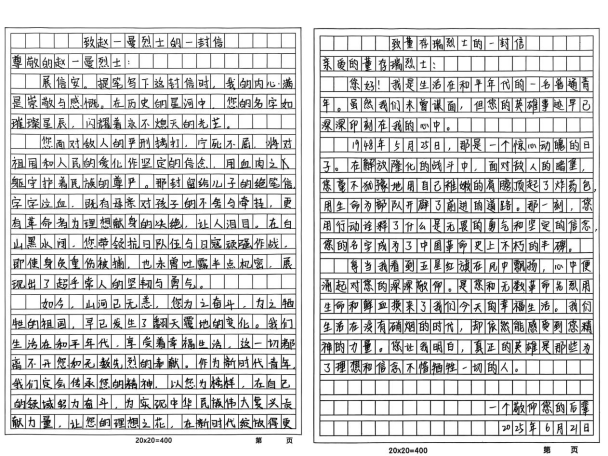 致赵一曼烈士的一封信
尊敬的赵一曼烈士：
展信安。提笔写下这封信时，我的内心满
是崇敬与感慨。在历史的星河中，您的名字如
璀璨星辰，闪耀着永不熄灭的光芒。
您面对敌人的严刑拷打，宁死不屈，将对
祖国和人民的爱化作坚定的信念，用血肉之
躯守护着民族的尊严。那封留给儿子的绝笔信
字字泣血，既有母亲对孩子的不舍与牵挂，更
有革命者为理想献身的决绝，让人泪目。在白
山黑水间，您带领抗日队伍与日寇顽强作战，
即使身负重伤被捕，也未曾吐露半点机密，展
现出了超乎常人的坚韧与勇气。
如今，山河已无恙，您为之奋斗、为之牺
牲的祖国，早已发生了翻天覆地的变化。我们
生活在和平年代，享受着幸福生活，这一切都
离不开您和无数先烈的奉献。作为新时代青年，
我们定会传承您的精神，以您为榜样，在自己
的领域努力奋斗，为实现中华民族伟大复兴
献力量，让您的理想之花，在新时代绽放得更
20x20=400
第 页
致董存瑞烈士的一封信
亲爱的董存瑞烈士：
您好！我是生活在和平年代的一名普通青
年。虽然我们未曾谋面，但您的英雄事迹早已
深深印刻在我的心中。
1948年5月25日，那是一个惊心动魄的日
子。在解放隆化的战斗中，面对敌人的暗堡，
您毫不犹豫地用自己稚嫩的肩膀顶起了炸药包，
用生命为部队开辟了前进的道路。那一刻，您
用行动诠释了什么是无畏的勇气和坚定的信念，
您的名字成为了中国革命史上不朽的丰碑。
每当我看到五星红旗在风中飘扬，心中便
涌起对您的深深敬仰。是您和无数革命先烈用
生命和鲜血换来了我们今天的幸福生活。我们
生活在没有硝烟的时代，却依然能感受到您精
神的力量。您让我明白，真正的英雄是那些为
了理想和信念不惜牺牲一切的人。
一个敬仰您的后辈
2025年6月21日
20x20=400
第 页